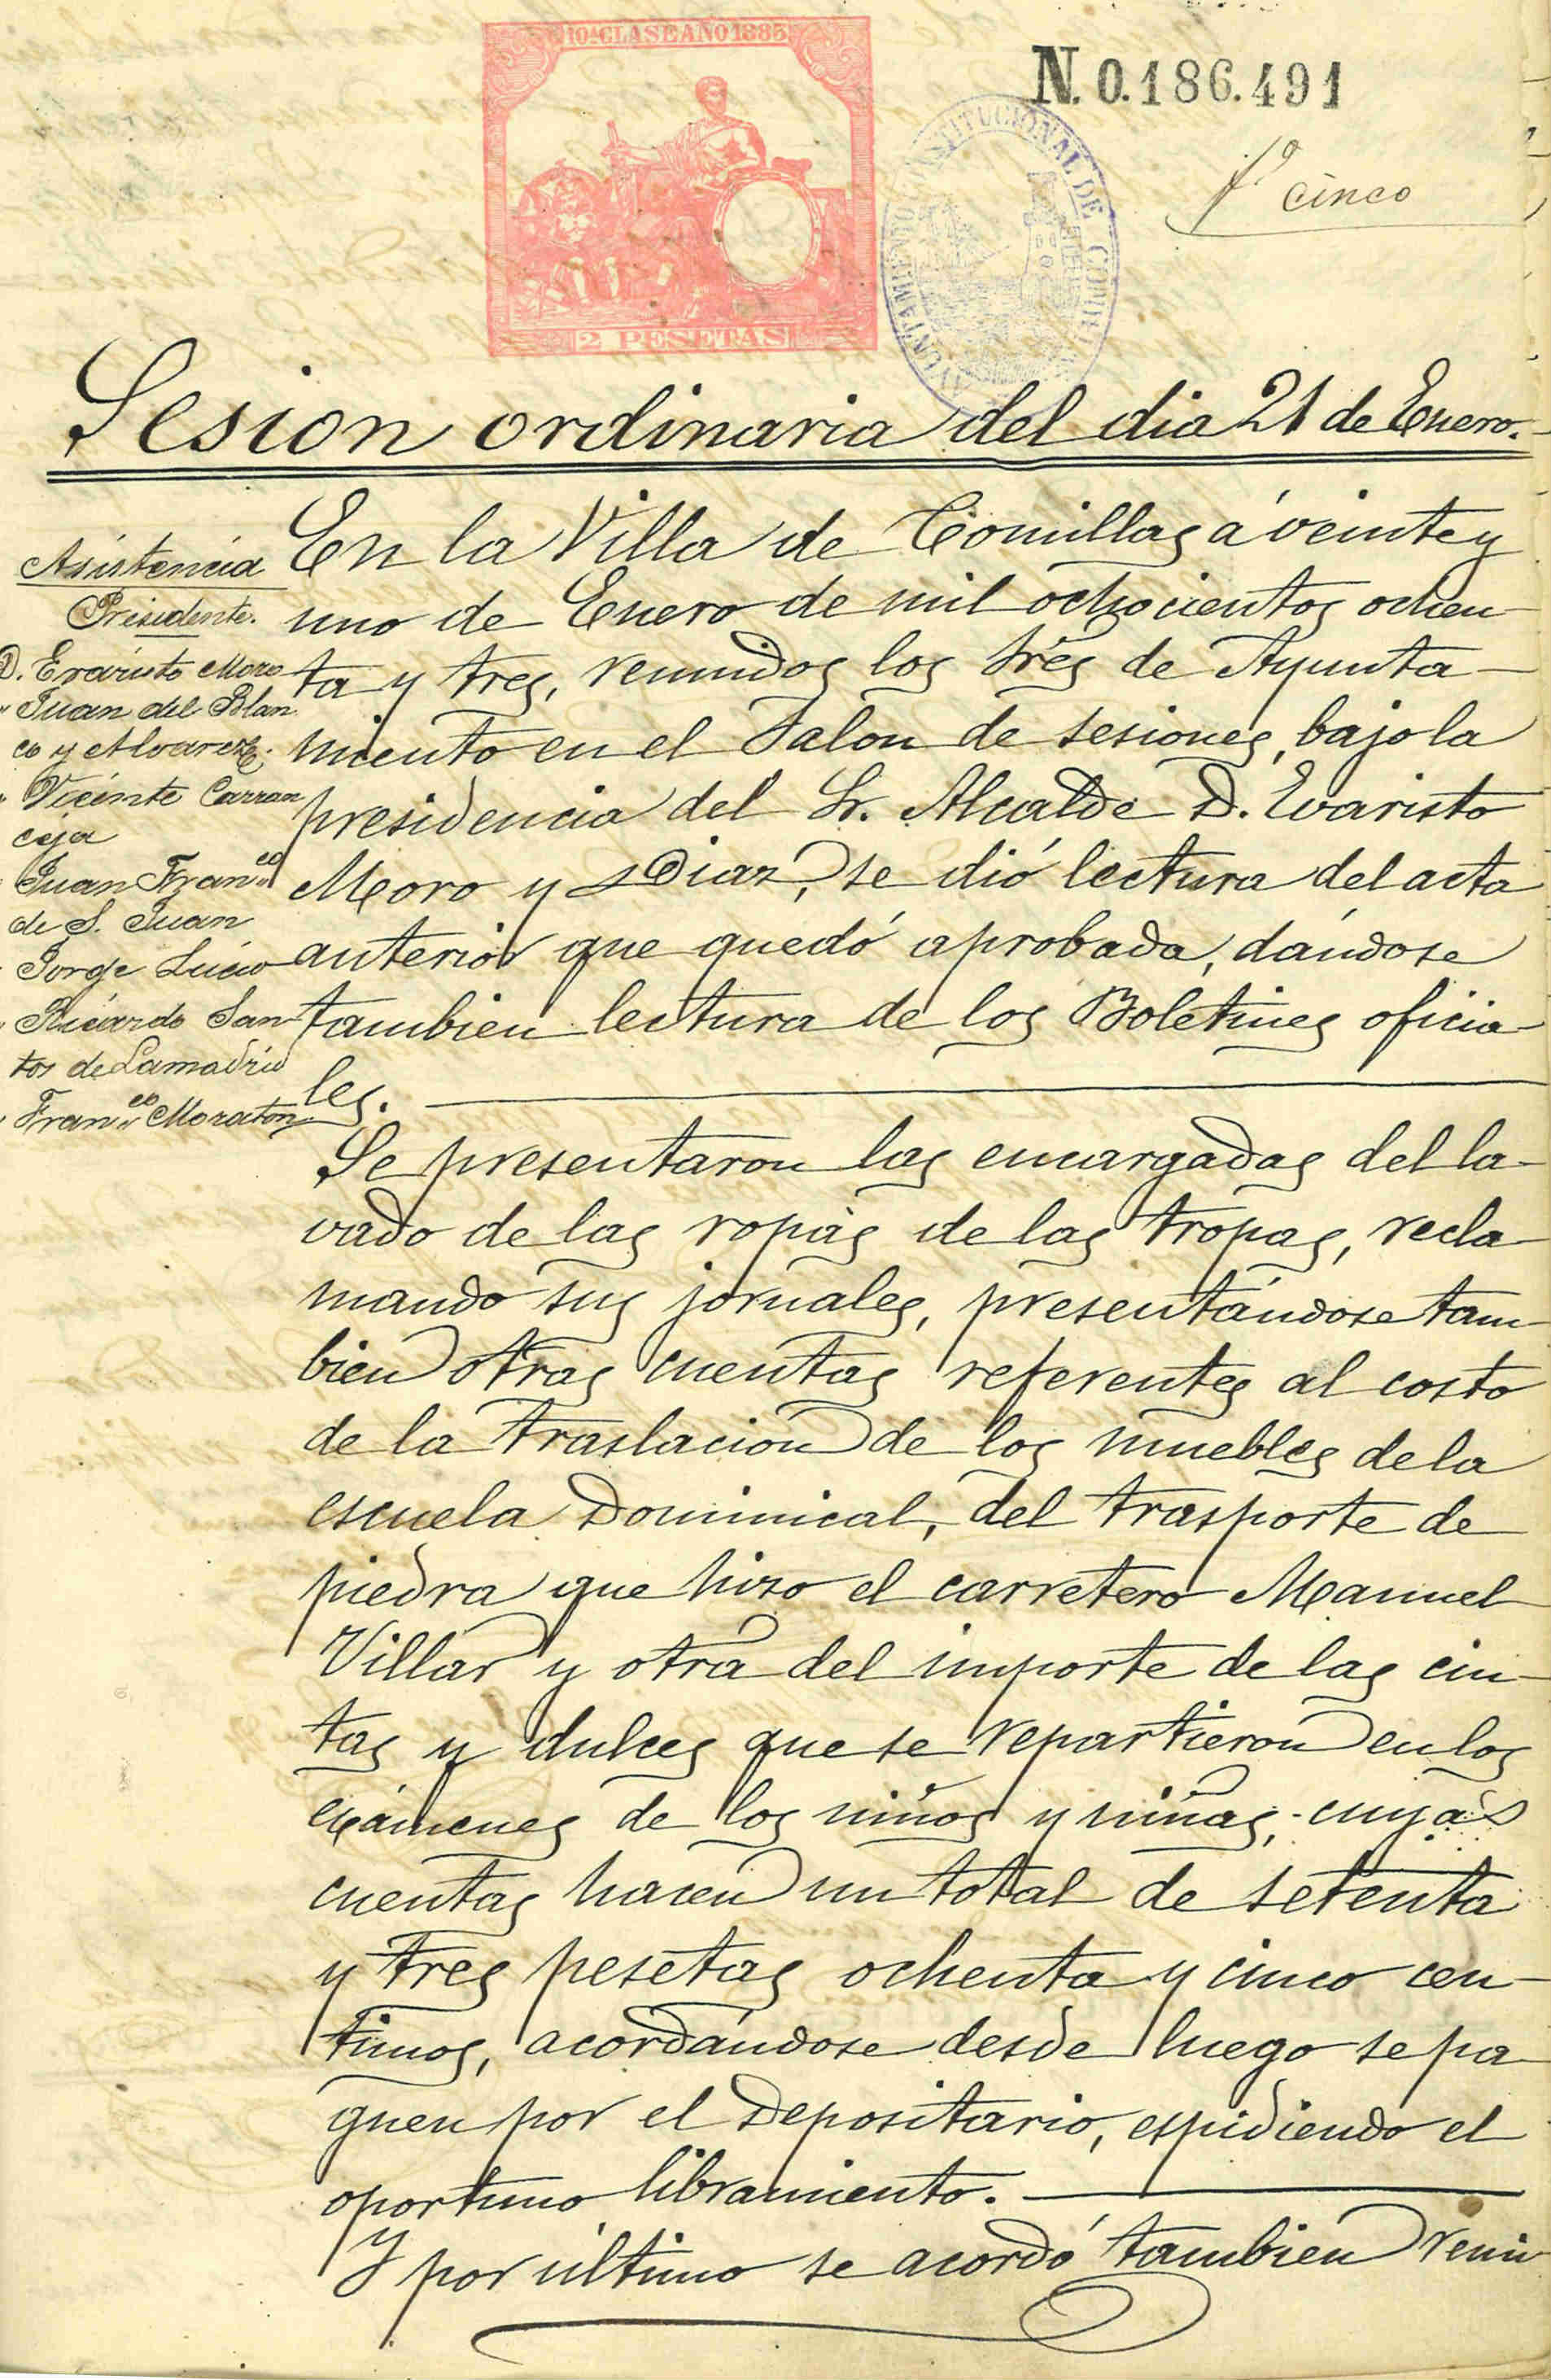 10ª CLASE AÑO 1883
2 PESETAS
N. 0.186.491
AYUNTAMIENTO CONSTITUCIONAL DE COMILLAS
fº cinco
Sesion ordinaria del dia 21 de Enero.
Asistencia
Presidente.
D. Evaristo Moro
" Juan del Blan
co y Alvarez.
" Vicente Carran
ceja
" Juan Franco
de S. Juan
" Jorge Lucio
" Ricardo San
tos de Lamadrid
" Franco Moraton
En la Villa de Comillas á veinte y
uno de Enero de mil ochocientos ochen
ta y tres, reunidos los Sres de Ayunta-
miento en el Salon de sesiones, bajo la
presidencia del Sr. Alcalde D. Evaristo
Moro y Diaz, se dió lectura del acta
anterior que quedó aprobada, dándose
tambien lectura de los Boletines oficia-
les.
Se presentaron las encargadas del la-
vado de las ropas de las tropas, recla-
mando sus jornales, presentándose tam-
bien otras cuentas referentes al costo
de la traslacion de los muebles de la
escuela Dominical, del trasporte de
piedra que hizo el carretero Manuel
Villar y otra del importe de las cin-
tas y dulces que se repartieron en los
exámenes de los niños y niñas, cuyas
cuentas hacen un total de setenta
y tres pesetas ochenta y cinco cen-
timos, acordándose desde luego se pa-
guen por el Depositario, espidiendo el
oportuno libramiento.
Y por último se acordó tambien reuni